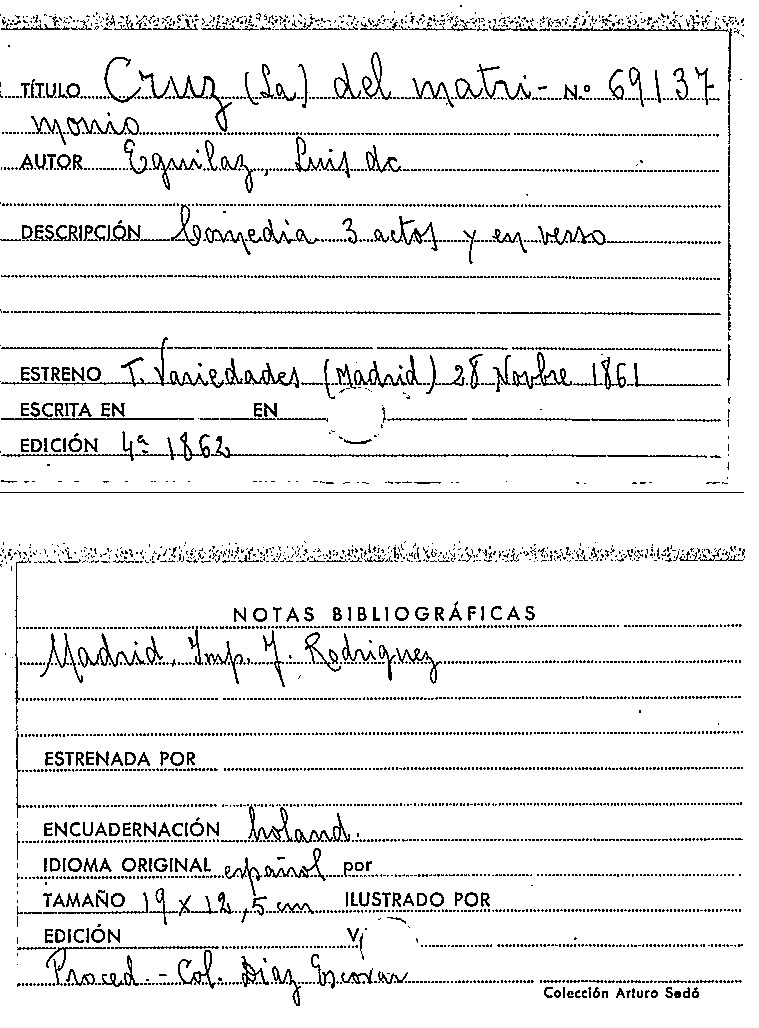 TÍTULO Cruz (La) del matri- N.º 69137
monio
AUTOR Eguilaz, Luis de
DESCRIPCIÓN Comedia 3 actos y en verso
ESTRENO T. Variedades (Madrid) 28 Novbre 1861
ESCRITA EN EN
EDICIÓN 4ª 1862
NOTAS BIBLIOGRÁFICAS
Madrid, Imp. J. Rodriguez
ESTRENADA POR
ENCUADERNACIÓN holand.
IDIOMA ORIGINAL español por
TAMAÑO 19 x 12,5 cm ILUSTRADO POR
EDICIÓN
Proced.- Col. Díaz Escovar
Colección Arturo Sedó